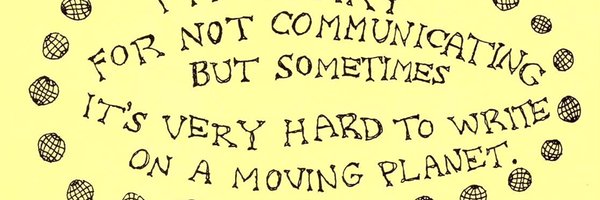 FOR NOT COMMUNICATING
BUT SOMETIMES
IT'S VERY HARD TO WRITE
ON A MOVING PLANET.